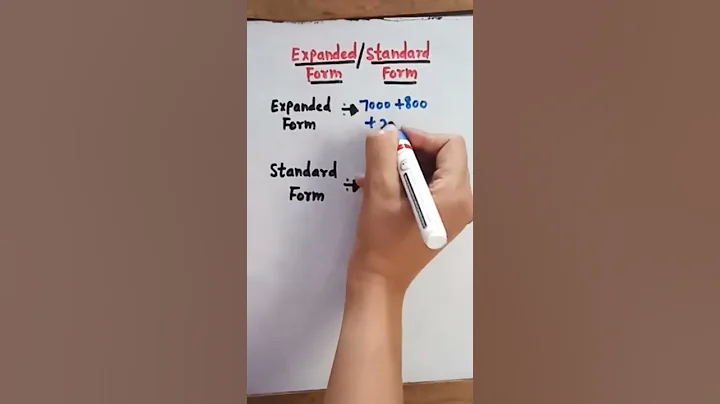 Expanded / Standard
Form Form
Expanded ÷→ 7000 +800
Form + 20
Standard ÷→
Form